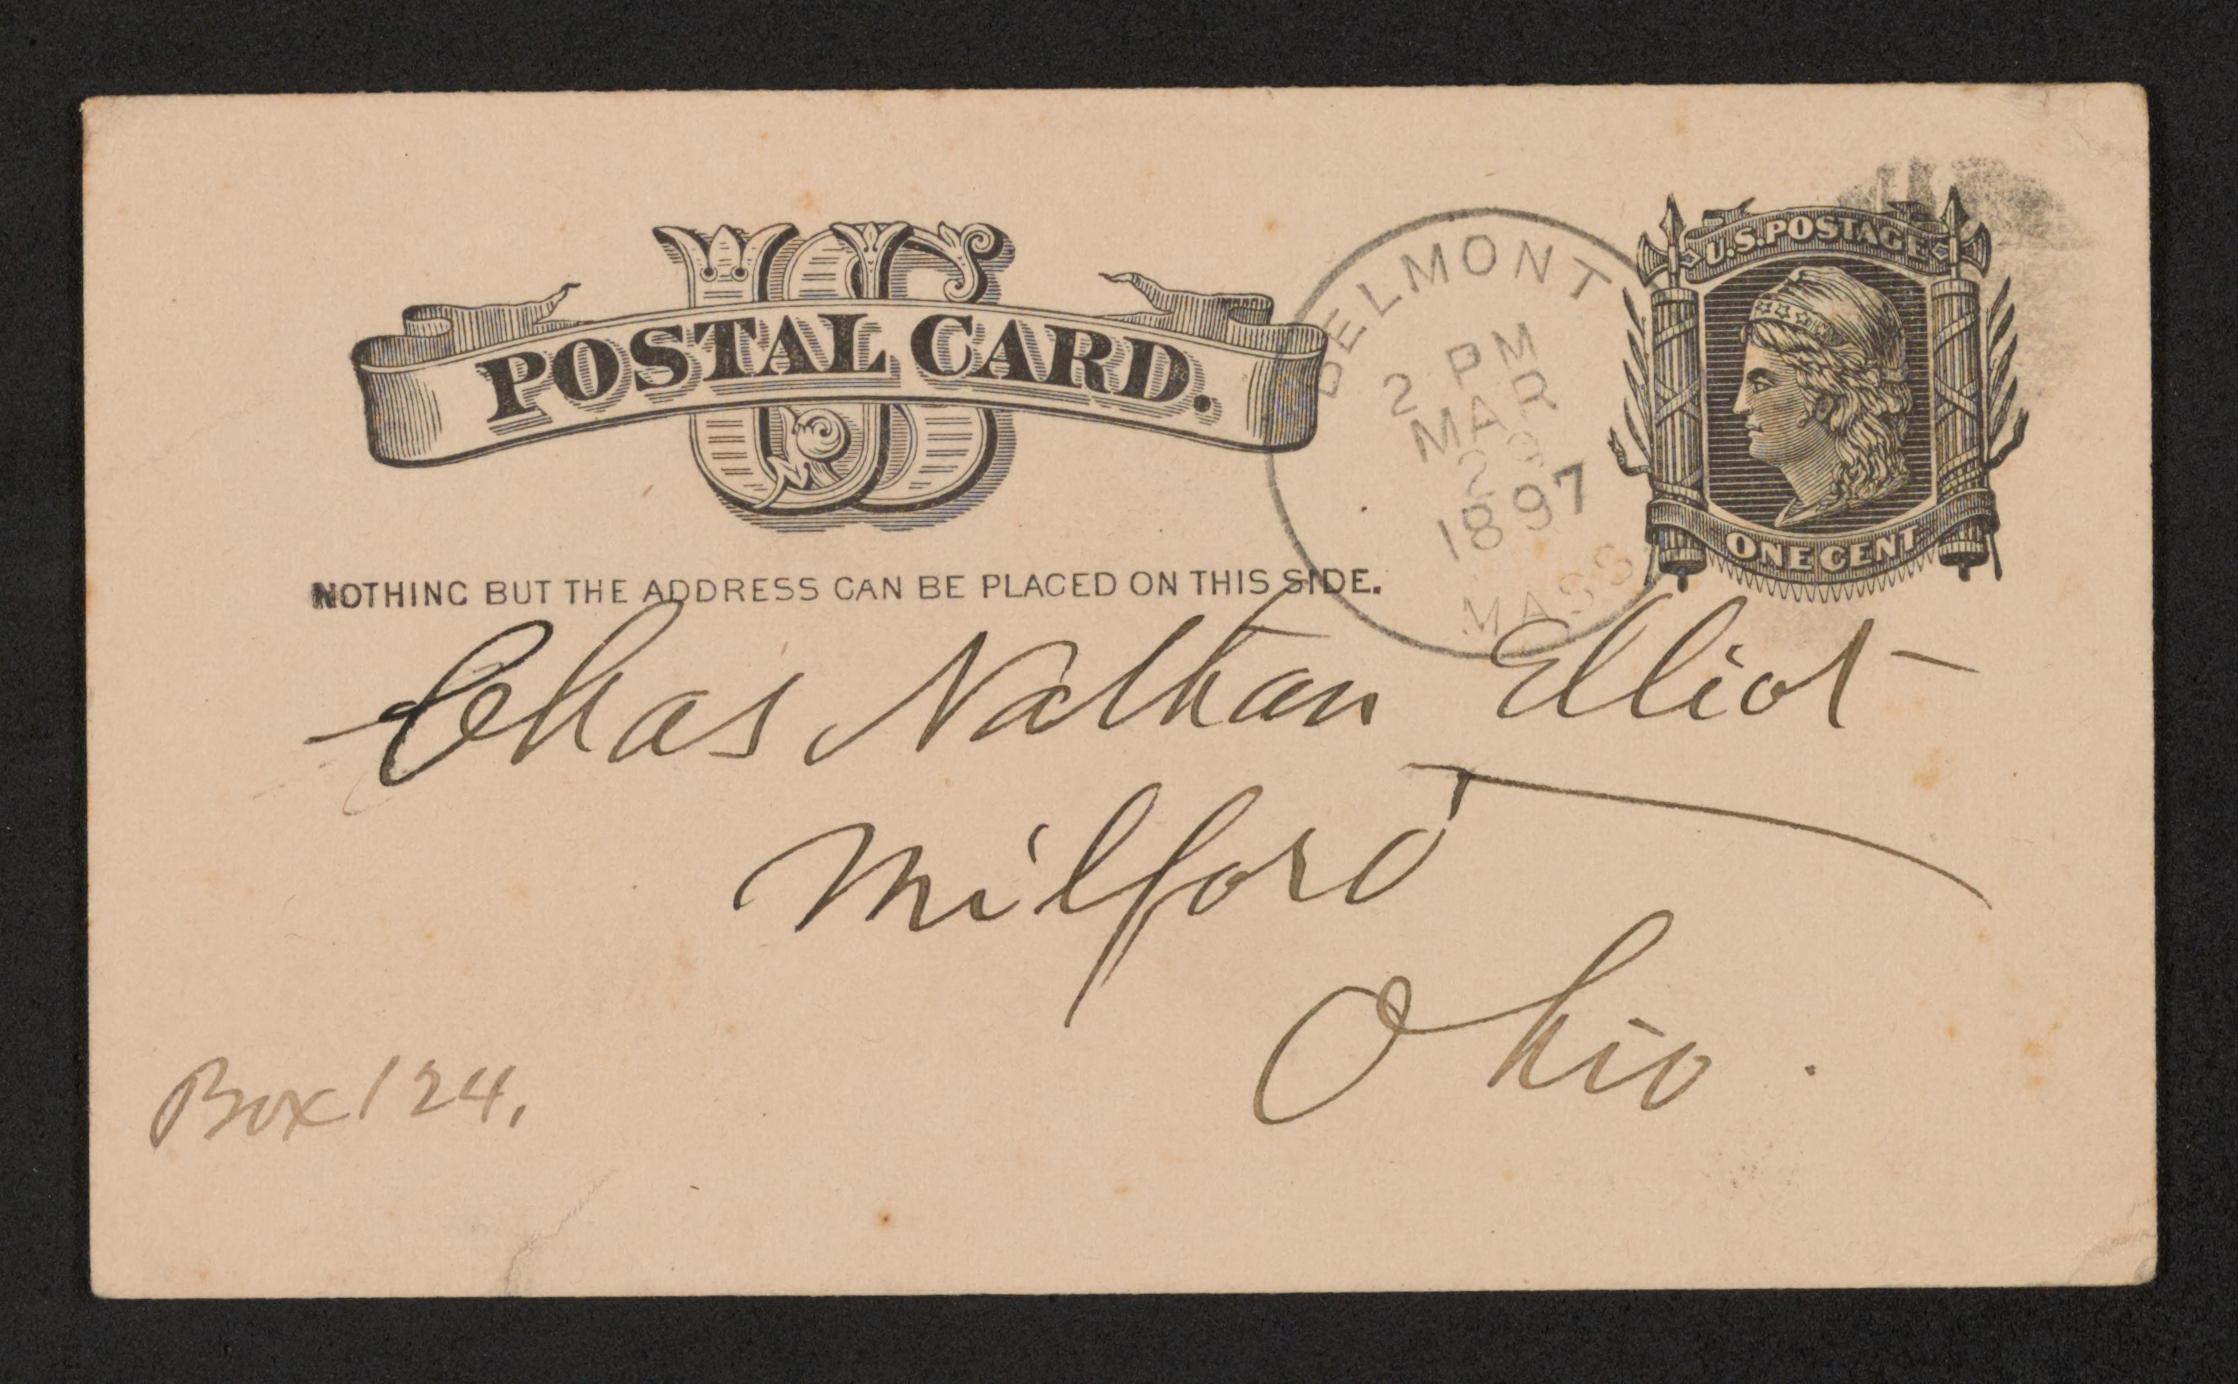 US
POSTAL CARD.
NOTHING BUT THE ADDRESS CAN BE PLACED ON THIS SIDE.
BELMONT
2 PM
MAR
2
1897
MASS
U.S. POSTAGE
ONE CENT
Chas Nathan Elliot
Milford
Ohio.
Box 124.